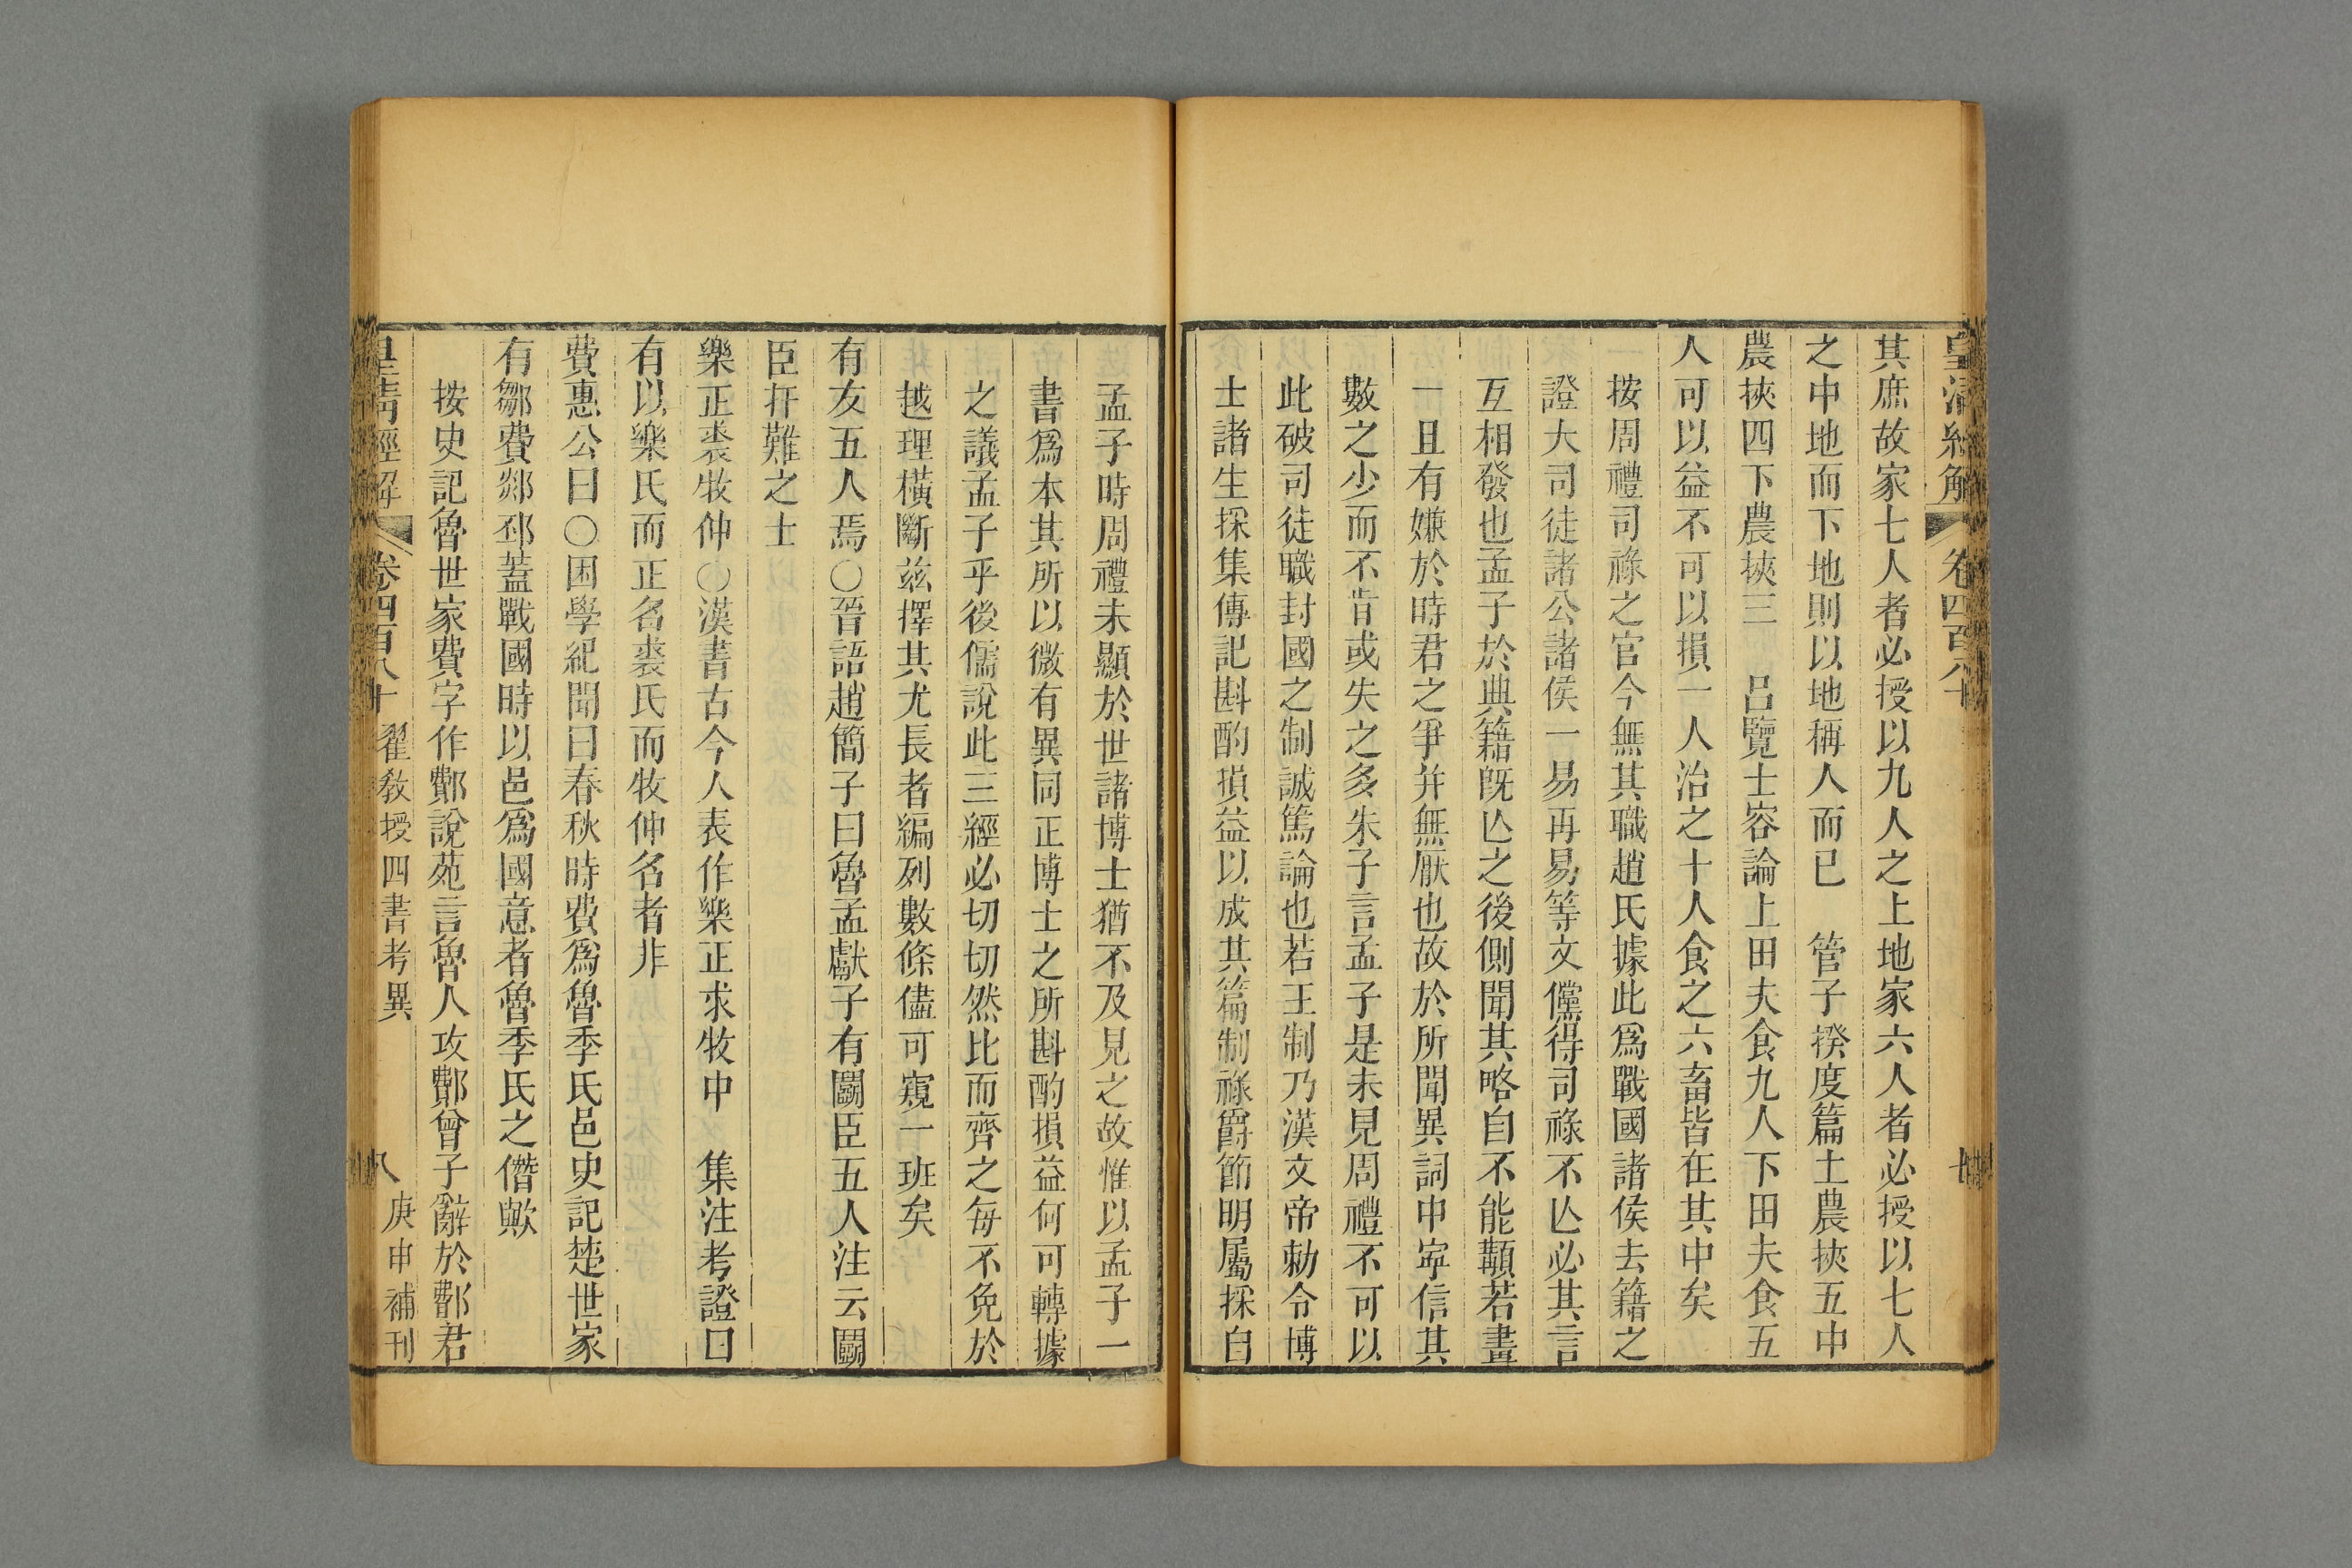 皇清經解 卷四百八十 七
其庶故家七人者必授以九人之上地家六人者必授以七人
之中地而下地則以地稱人而已 管子揆度篇土農挾五中
農挾四下農挾三 呂覽士容論上田夫食九人下田夫食五
人可以益不可以損一人治之十人食之六畜皆在其中矣
按周禮司祿之官今無其職趙氏據此爲戰國諸侯去籍之
證大司徒諸公諸侯一易再易等文儻得司祿不亾必其言
互相發也孟子於典籍旣亾之後側聞其略自不能顜若畫
一且有嫌於時君之爭并無厭也故於所聞異詞中寧信其
數之少而不肯或失之多朱子言孟子是未見周禮不可以
此破司徒職封國之制誠篤論也若王制乃漢文帝勅令博
士諸生採集傳記斟酌損益以成其篇制祿爵節明屬採自
孟子時周禮未顯於世諸博士猶不及見之故惟以孟子一
書爲本其所以微有異同正博士之所斟酌損益何可轉據
之議孟子乎後儒說此三經必切切然比而齊之每不免於
越理橫斷茲擇其尤長者編列數條儘可窺一班矣
有友五人焉〇晉語趙簡子曰魯孟獻子有鬭臣五人注云鬭
臣扞難之士
樂正裘牧仲〇漢書古今人表作樂正求牧中 集注考證曰
有以樂氏而正名裘氏而牧仲名者非
費惠公曰〇困學紀聞曰春秋時費爲魯季氏邑史記楚世家
有鄒費郯邳蓋戰國時以邑爲國意者魯季氏之僭歟
按史記魯世家費字作鄪說苑言魯人攻鄪曾子辭於鄪君
皇清經解 卷四百八十 翟教授四書考異 八 庚申補刊